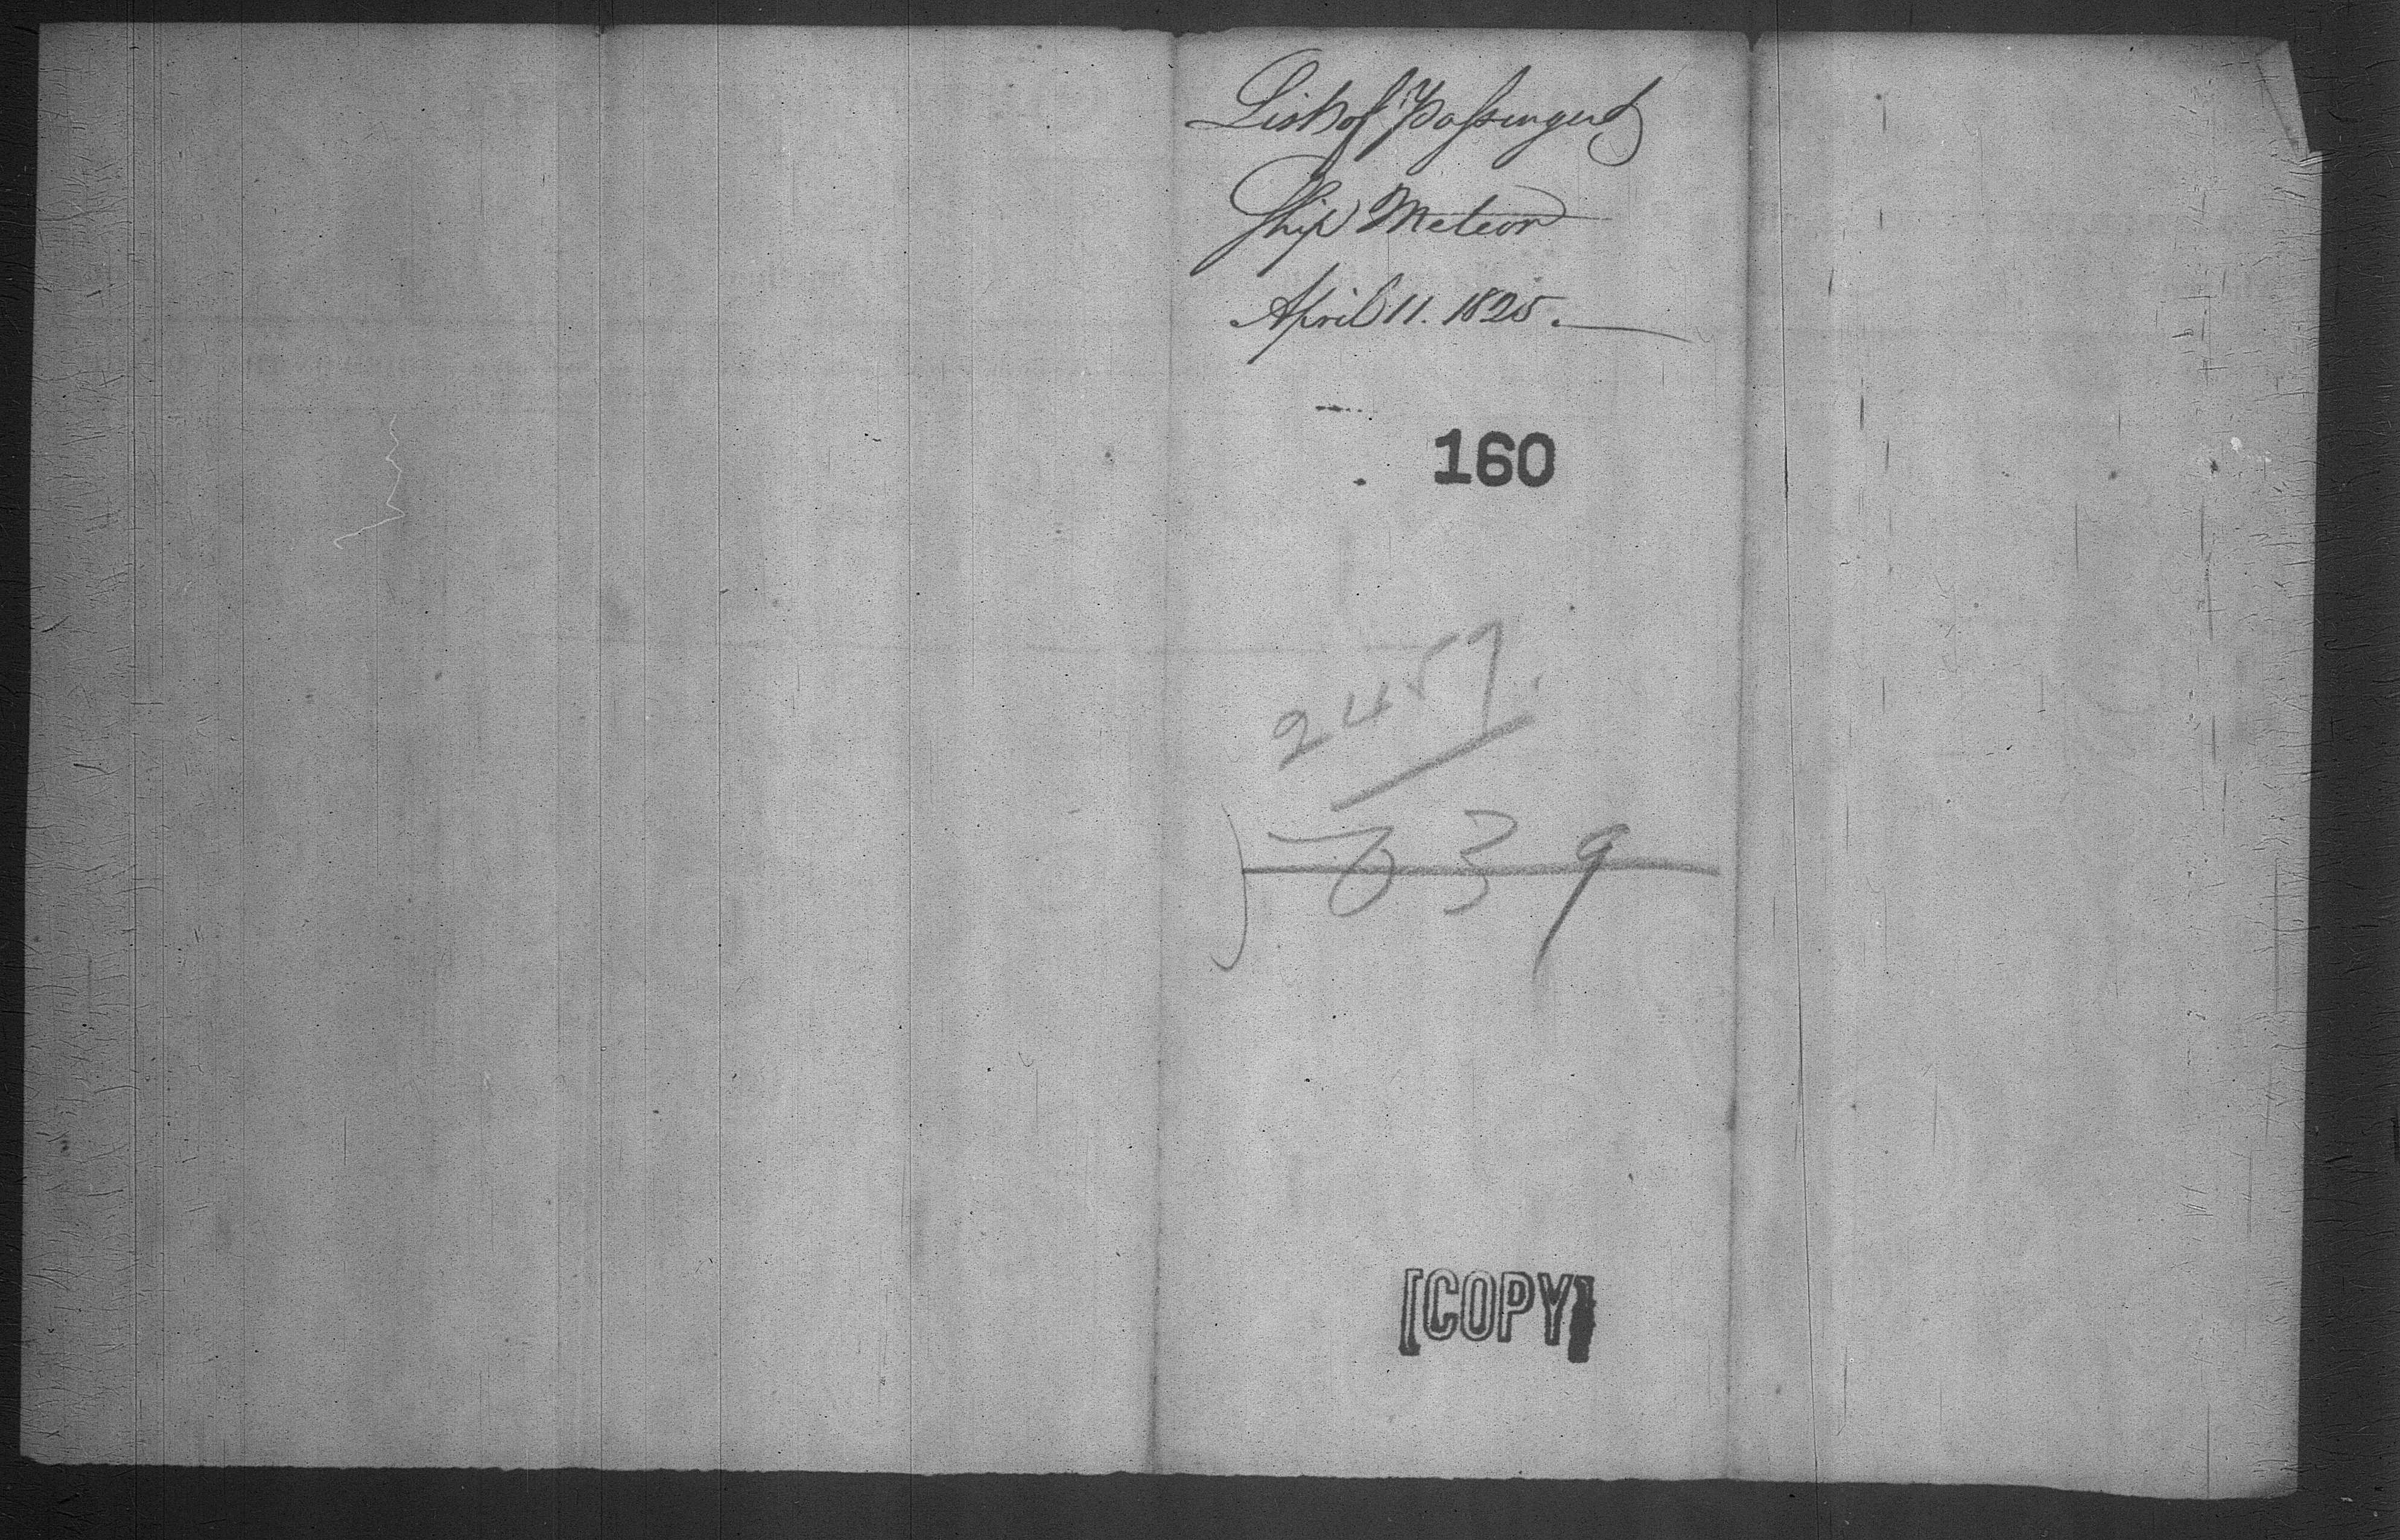 List of Passengers
Ship Meteor
April 11. 1825.
160
2457.
639
[COPY]